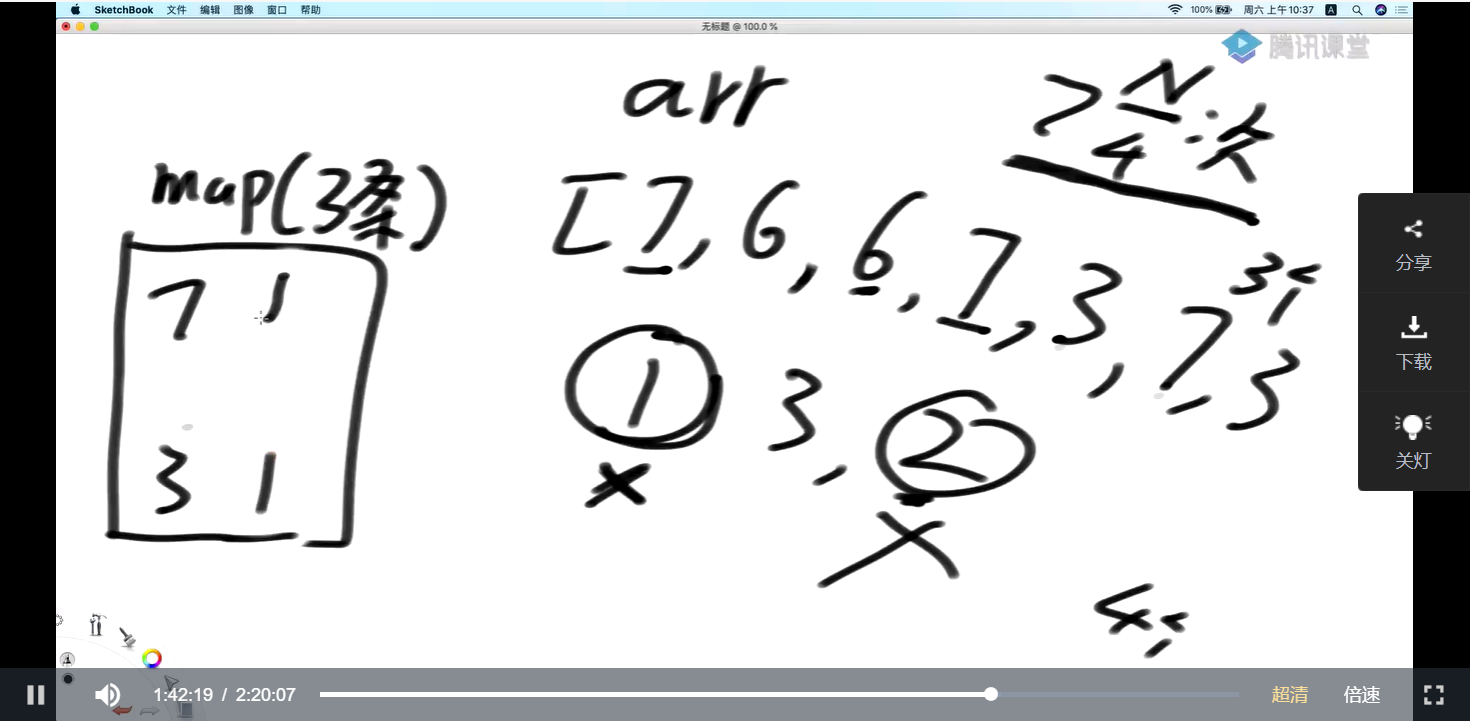 SketchBook 文件 编辑 图像 窗口 帮助 100% 周六 上午10:37 A
无标题 @ 100.0 %
腾讯课堂
arr
> N/4 次
map(3条)
[7, 6, 6, 7, 3, 7, 3
7 1
3个
1 3, 2
3 1
4个
分享
下载
关灯
1:42:19 / 2:20:07 超清 倍速